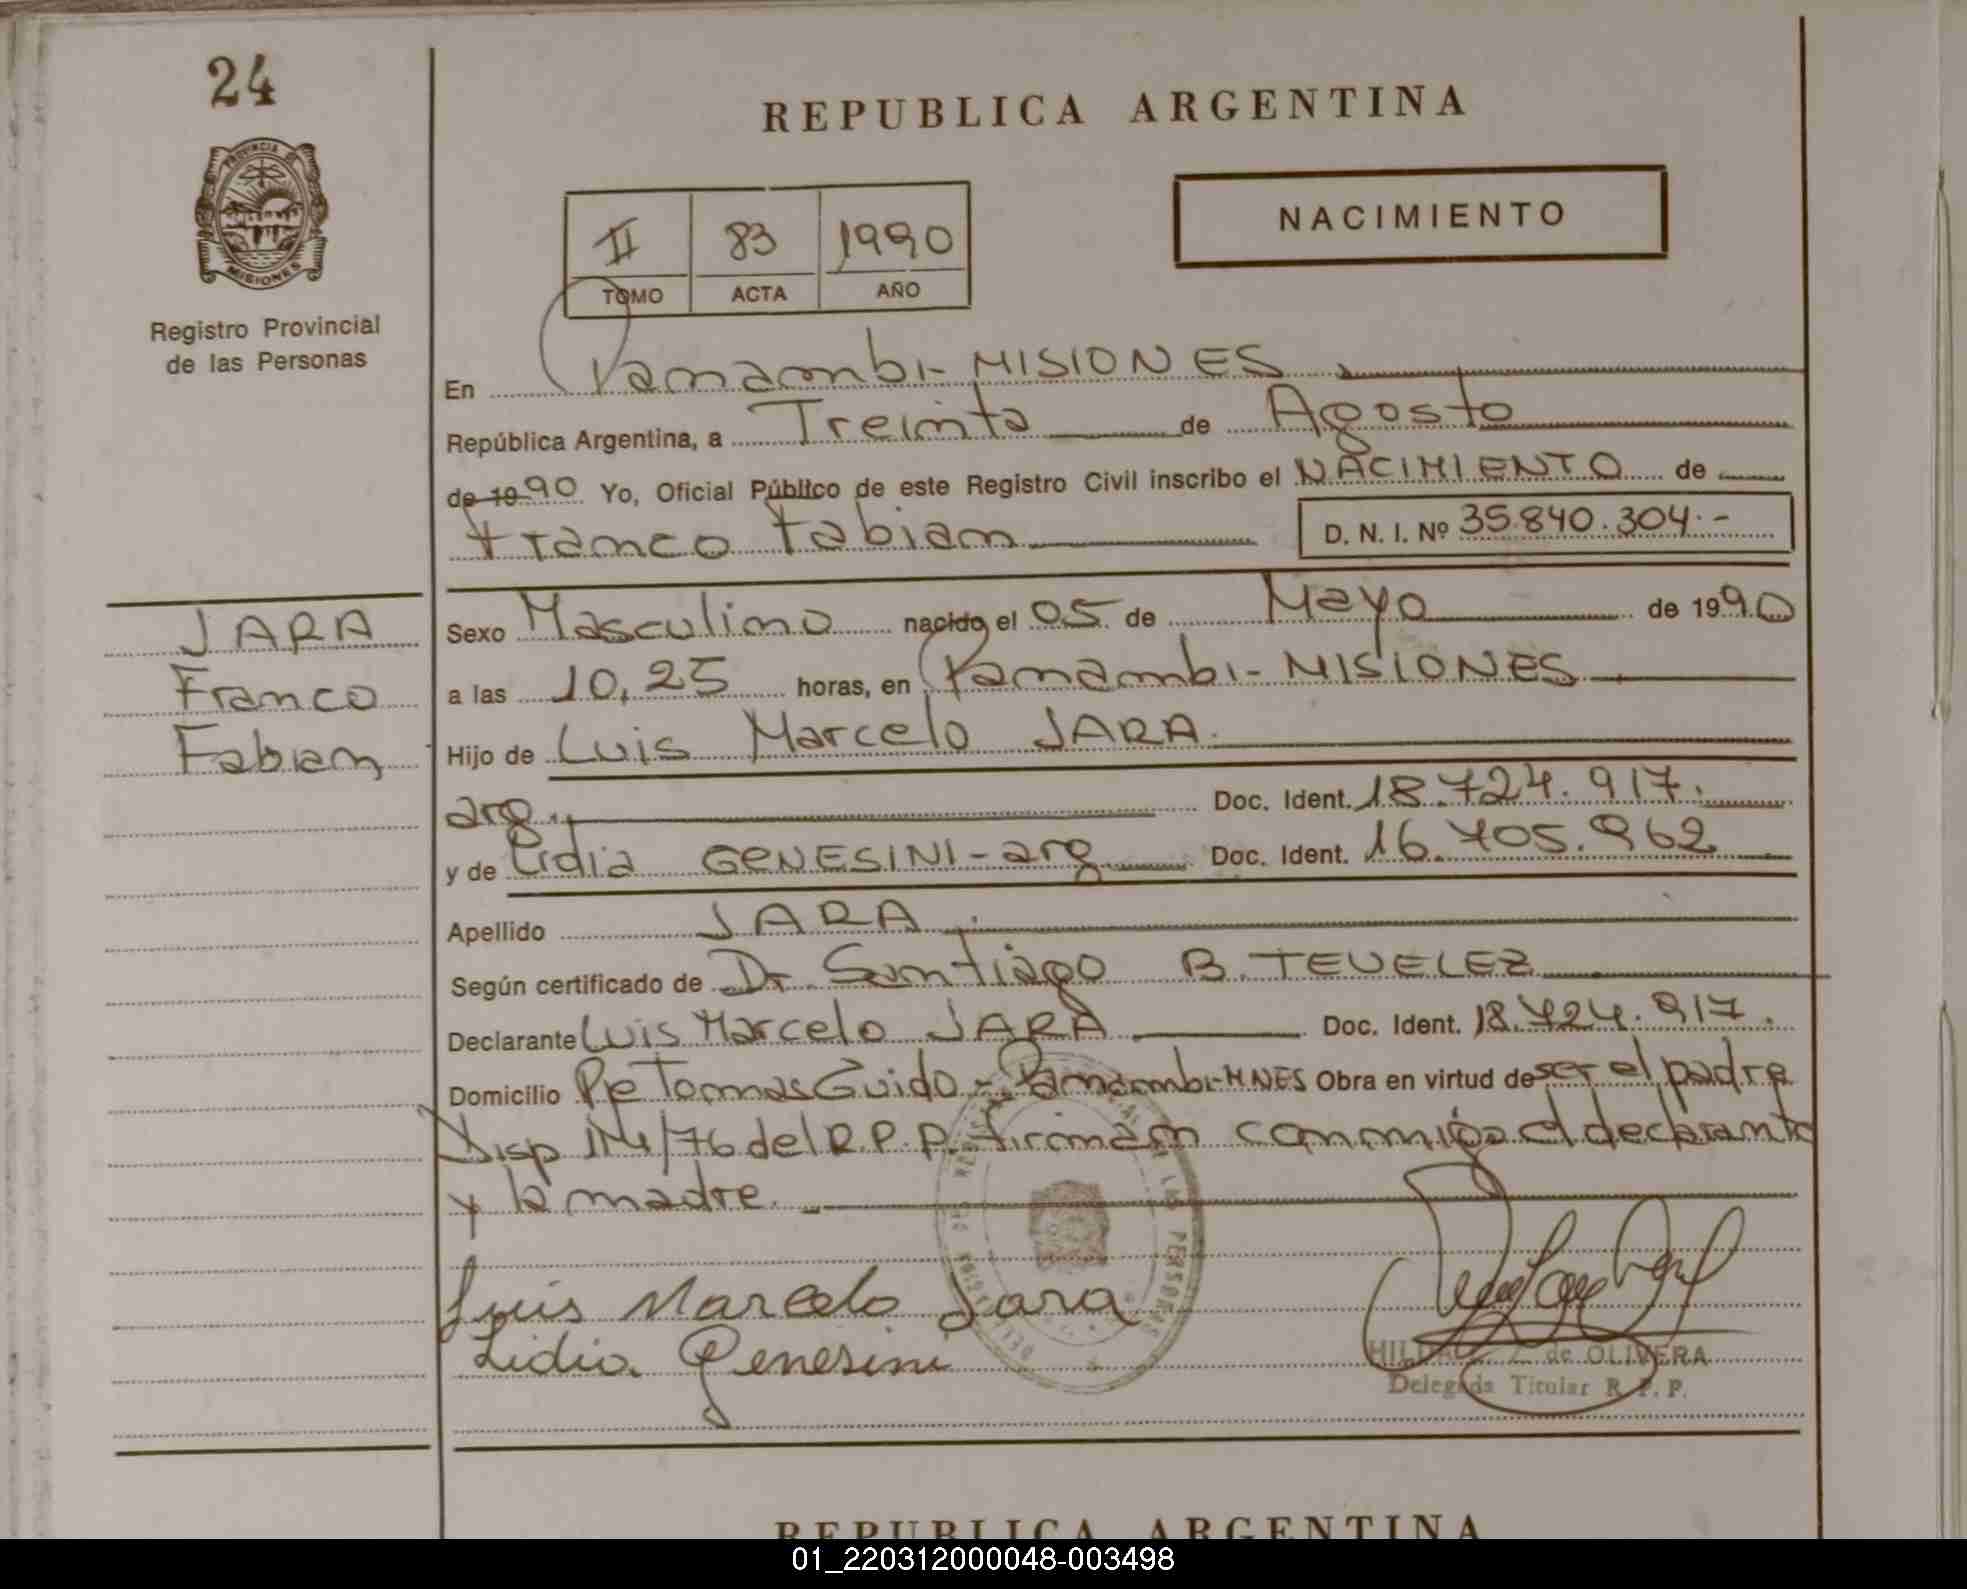 24
REPUBLICA ARGENTINA
PROVINCIA DE
MISIONES
Registro Provincial
de las Personas
NACIMIENTO
II 83 1990
TOMO ACTA AÑO
En Panambi-MISIONES
República Argentina, a Treinta de Agosto
de 1990 Yo, Oficial Público de este Registro Civil inscribo el NACIMIENTO de
Franco Fabian D. N. I. Nº 35.840.304.-
JARA
Franco
Fabian
Sexo Masculino nacido el 05 de Mayo de 1990
a las 10,25 horas, en Panambi-MISIONES
Hijo de Luis Marcelo JARA
arg. Doc. Ident. 18.724.917.
y de Lidia GENESINI-arg Doc. Ident. 16.705.962
Apellido JARA
Según certificado de Dr Santiago B. TEVELEZ
Declarante Luis Marcelo JARA Doc. Ident. 18.724.917.
Domicilio Pje Tomas Guido - Panambi-MNES Obra en virtud de ser el padre
Disp 174/76 del R.P.P. firman conmigo el declarante
y la madre.
Luis Marcelo Jara
Lidia Genesini
de OLIVERA
Delegada Titular R. P. P.
REPUBLICA ARGENTINA
01_220312000048-003498